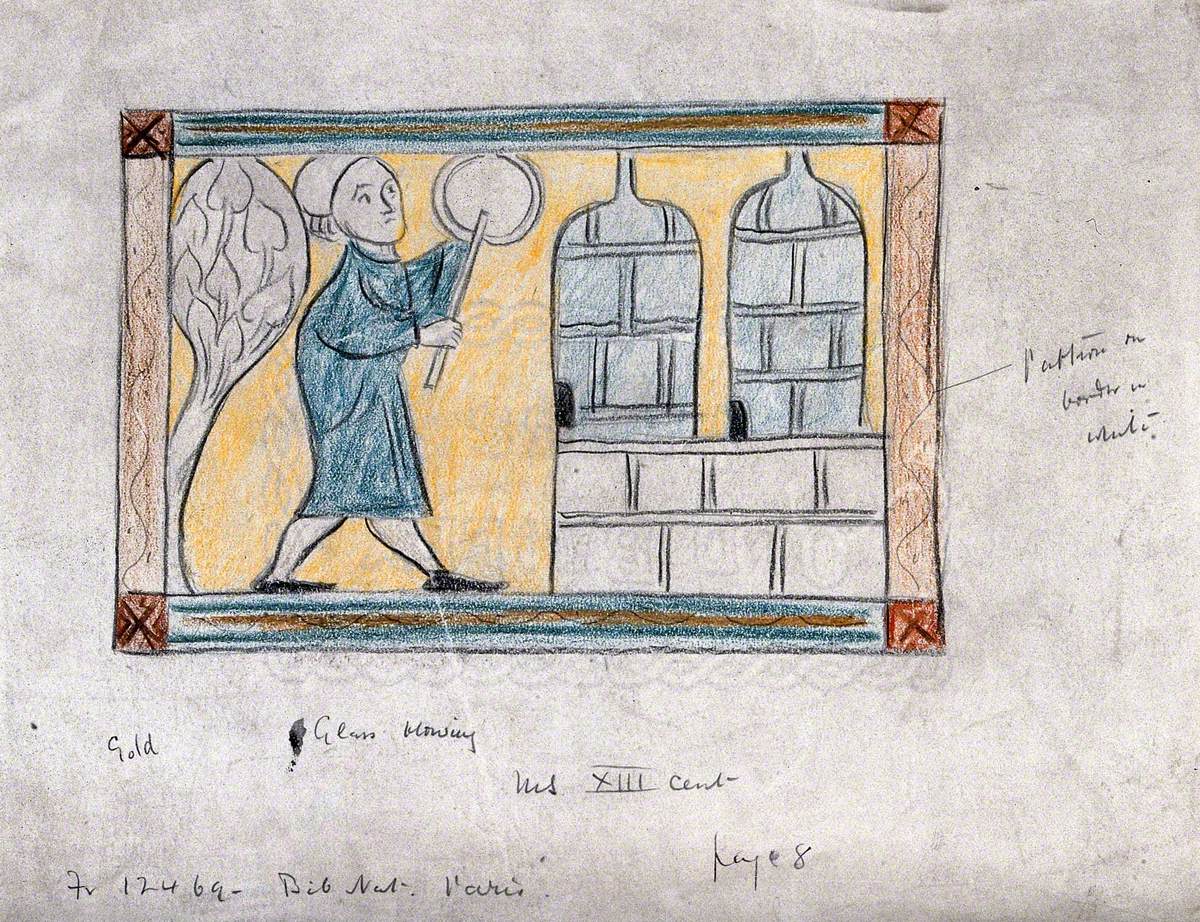 Pattern on
border in
white.
Gold
Glass blowing
MS XIII cent
page 8
Fr 12469- Bib Nat. Paris.